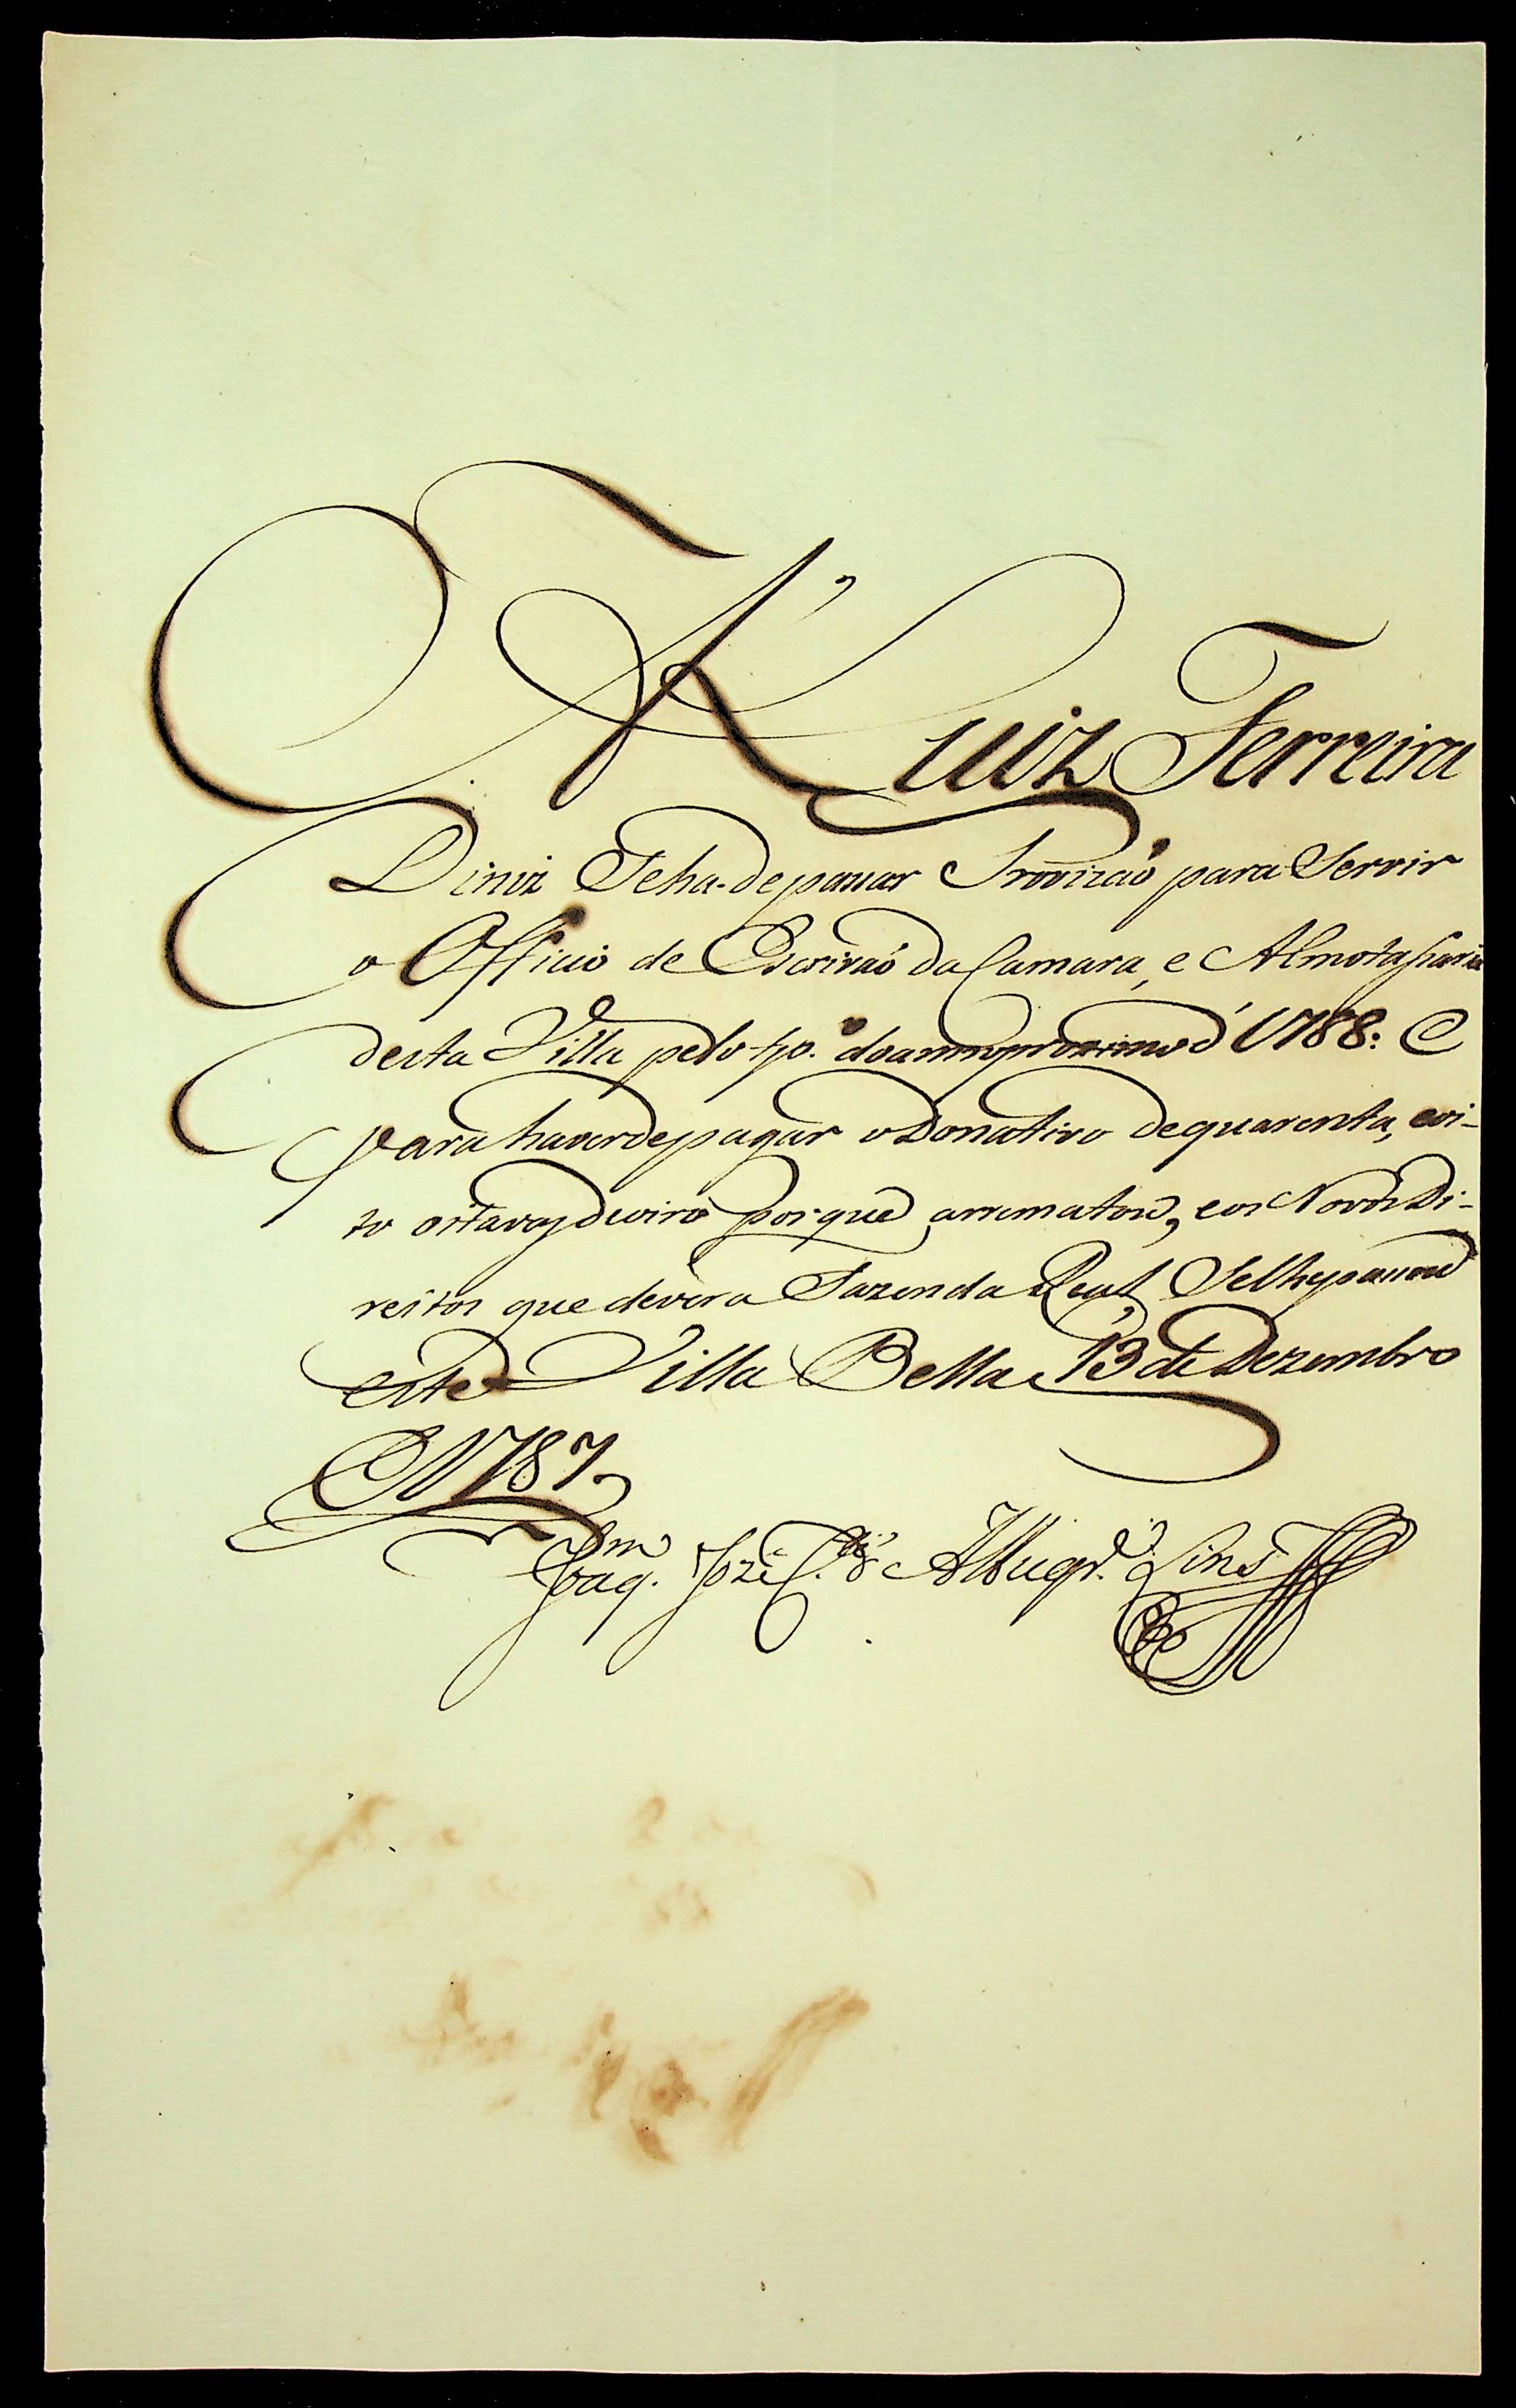 A Luiz Ferreira
Diniz Se ha-de passar Provizaõ para Servir
o Officio de Escrivaõ da Camara, e Almotasaria
desta Villa pelo tpo. do anno proximo d' 1788: E
para haver de pagar o Donativo de quarenta, e oi-
to oitavas de oiro por que arrematou, e os Novos Di-
reitos que dever a Fazenda Real Se lhe passou
este Villa Bella 13 de Dezembro
1787.
Joaqm. Jozé Cavti. de Albuqr.e Lins